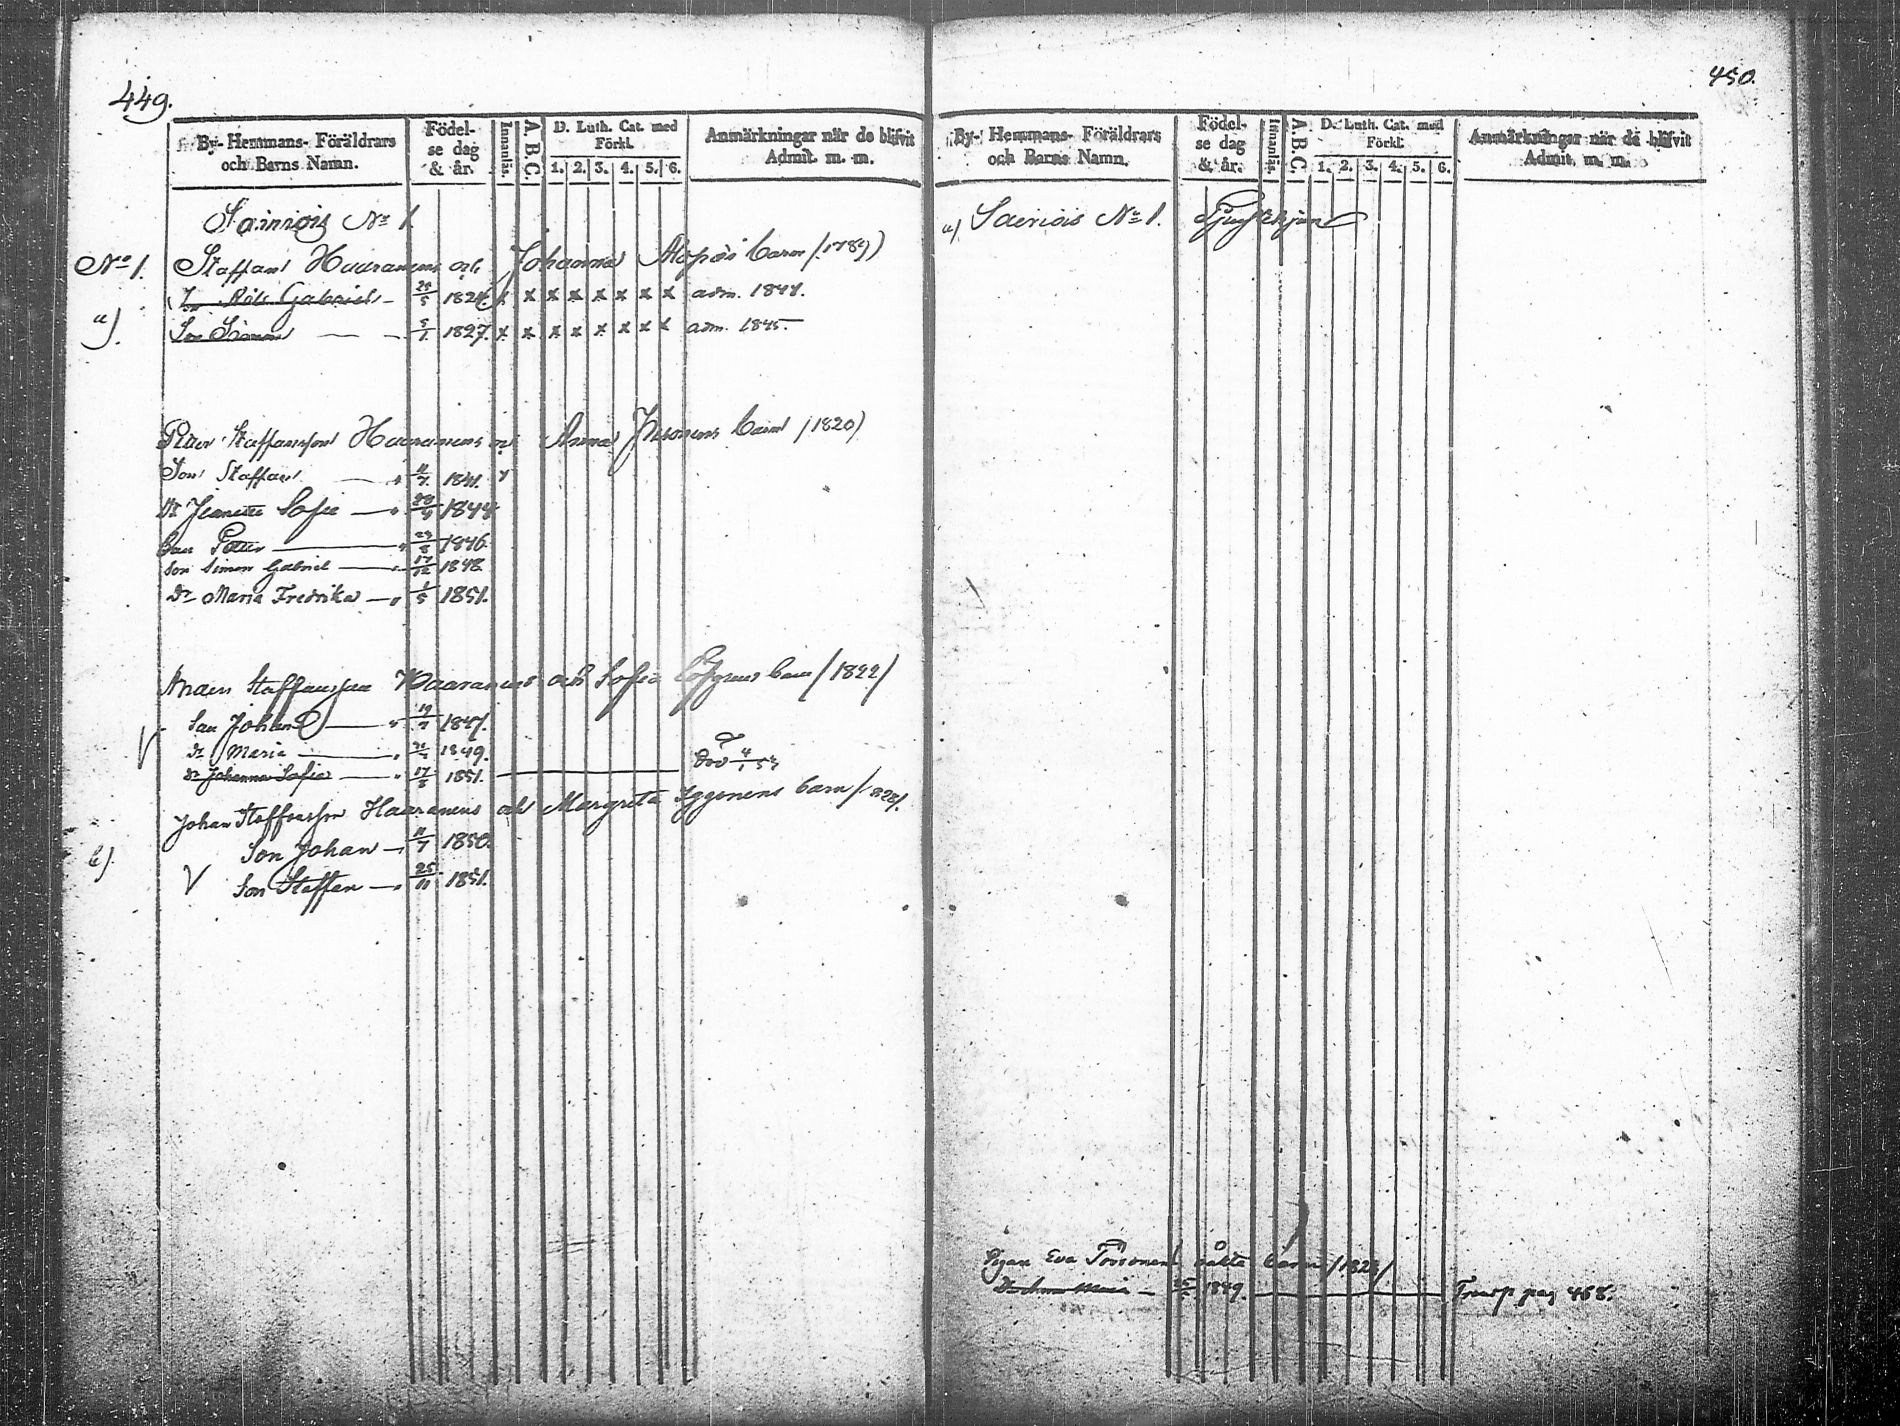 449.
By- Hemmans- Föräldrars och Barns Namn.
Födelse dag & år.
Innanläs.
A.B.C.
D. Luth. Cat. med Förkl.
1. 2. 3. 4. 5. 6.
Anmärkningar när de blifvit Admit. m. m.
No 1.
Staffan Haaranens och Johanna barn (1789)
a).
Gabriel 5 1824. x x x x x x x x adm. 1841.
Son Simon 5/1 1827. x x x x x x x x adm. 1845.
Petter Staffansson Haaranens och Anna barn (1820)
Son Staffan 11/7 1841.
Dr Sofie 1844
Son Petter 23/8 1846.
Son Simon Gabriel 17/12 1848
Dr Maria Fredrika 1/5 1851.
Staffansson Haaranens och Sofia barn (1822)
Son Johan 19/7 1847.
V
Dr Maria 1849.
Dr Johanna Sofia 17/5 1851. Död 4/1 53
Johan Staffansson Haaranens och Margreta barn
Son Johan 11/7 1850.
b).
V Son Staffan 25/11 1851.
450.
By- Hemmans- Föräldrars och Barns Namn.
Födelse dag & år.
Innanläs.
A.B.C.
D. Luth. Cat. med Förkl.
1. 2. 3. 4. 5. 6.
Anmärkningar när de blifvit Admit. m. m.
a) No 1.
Pigan Eva oäkta barn
Maria 1849. Transp pag 468.